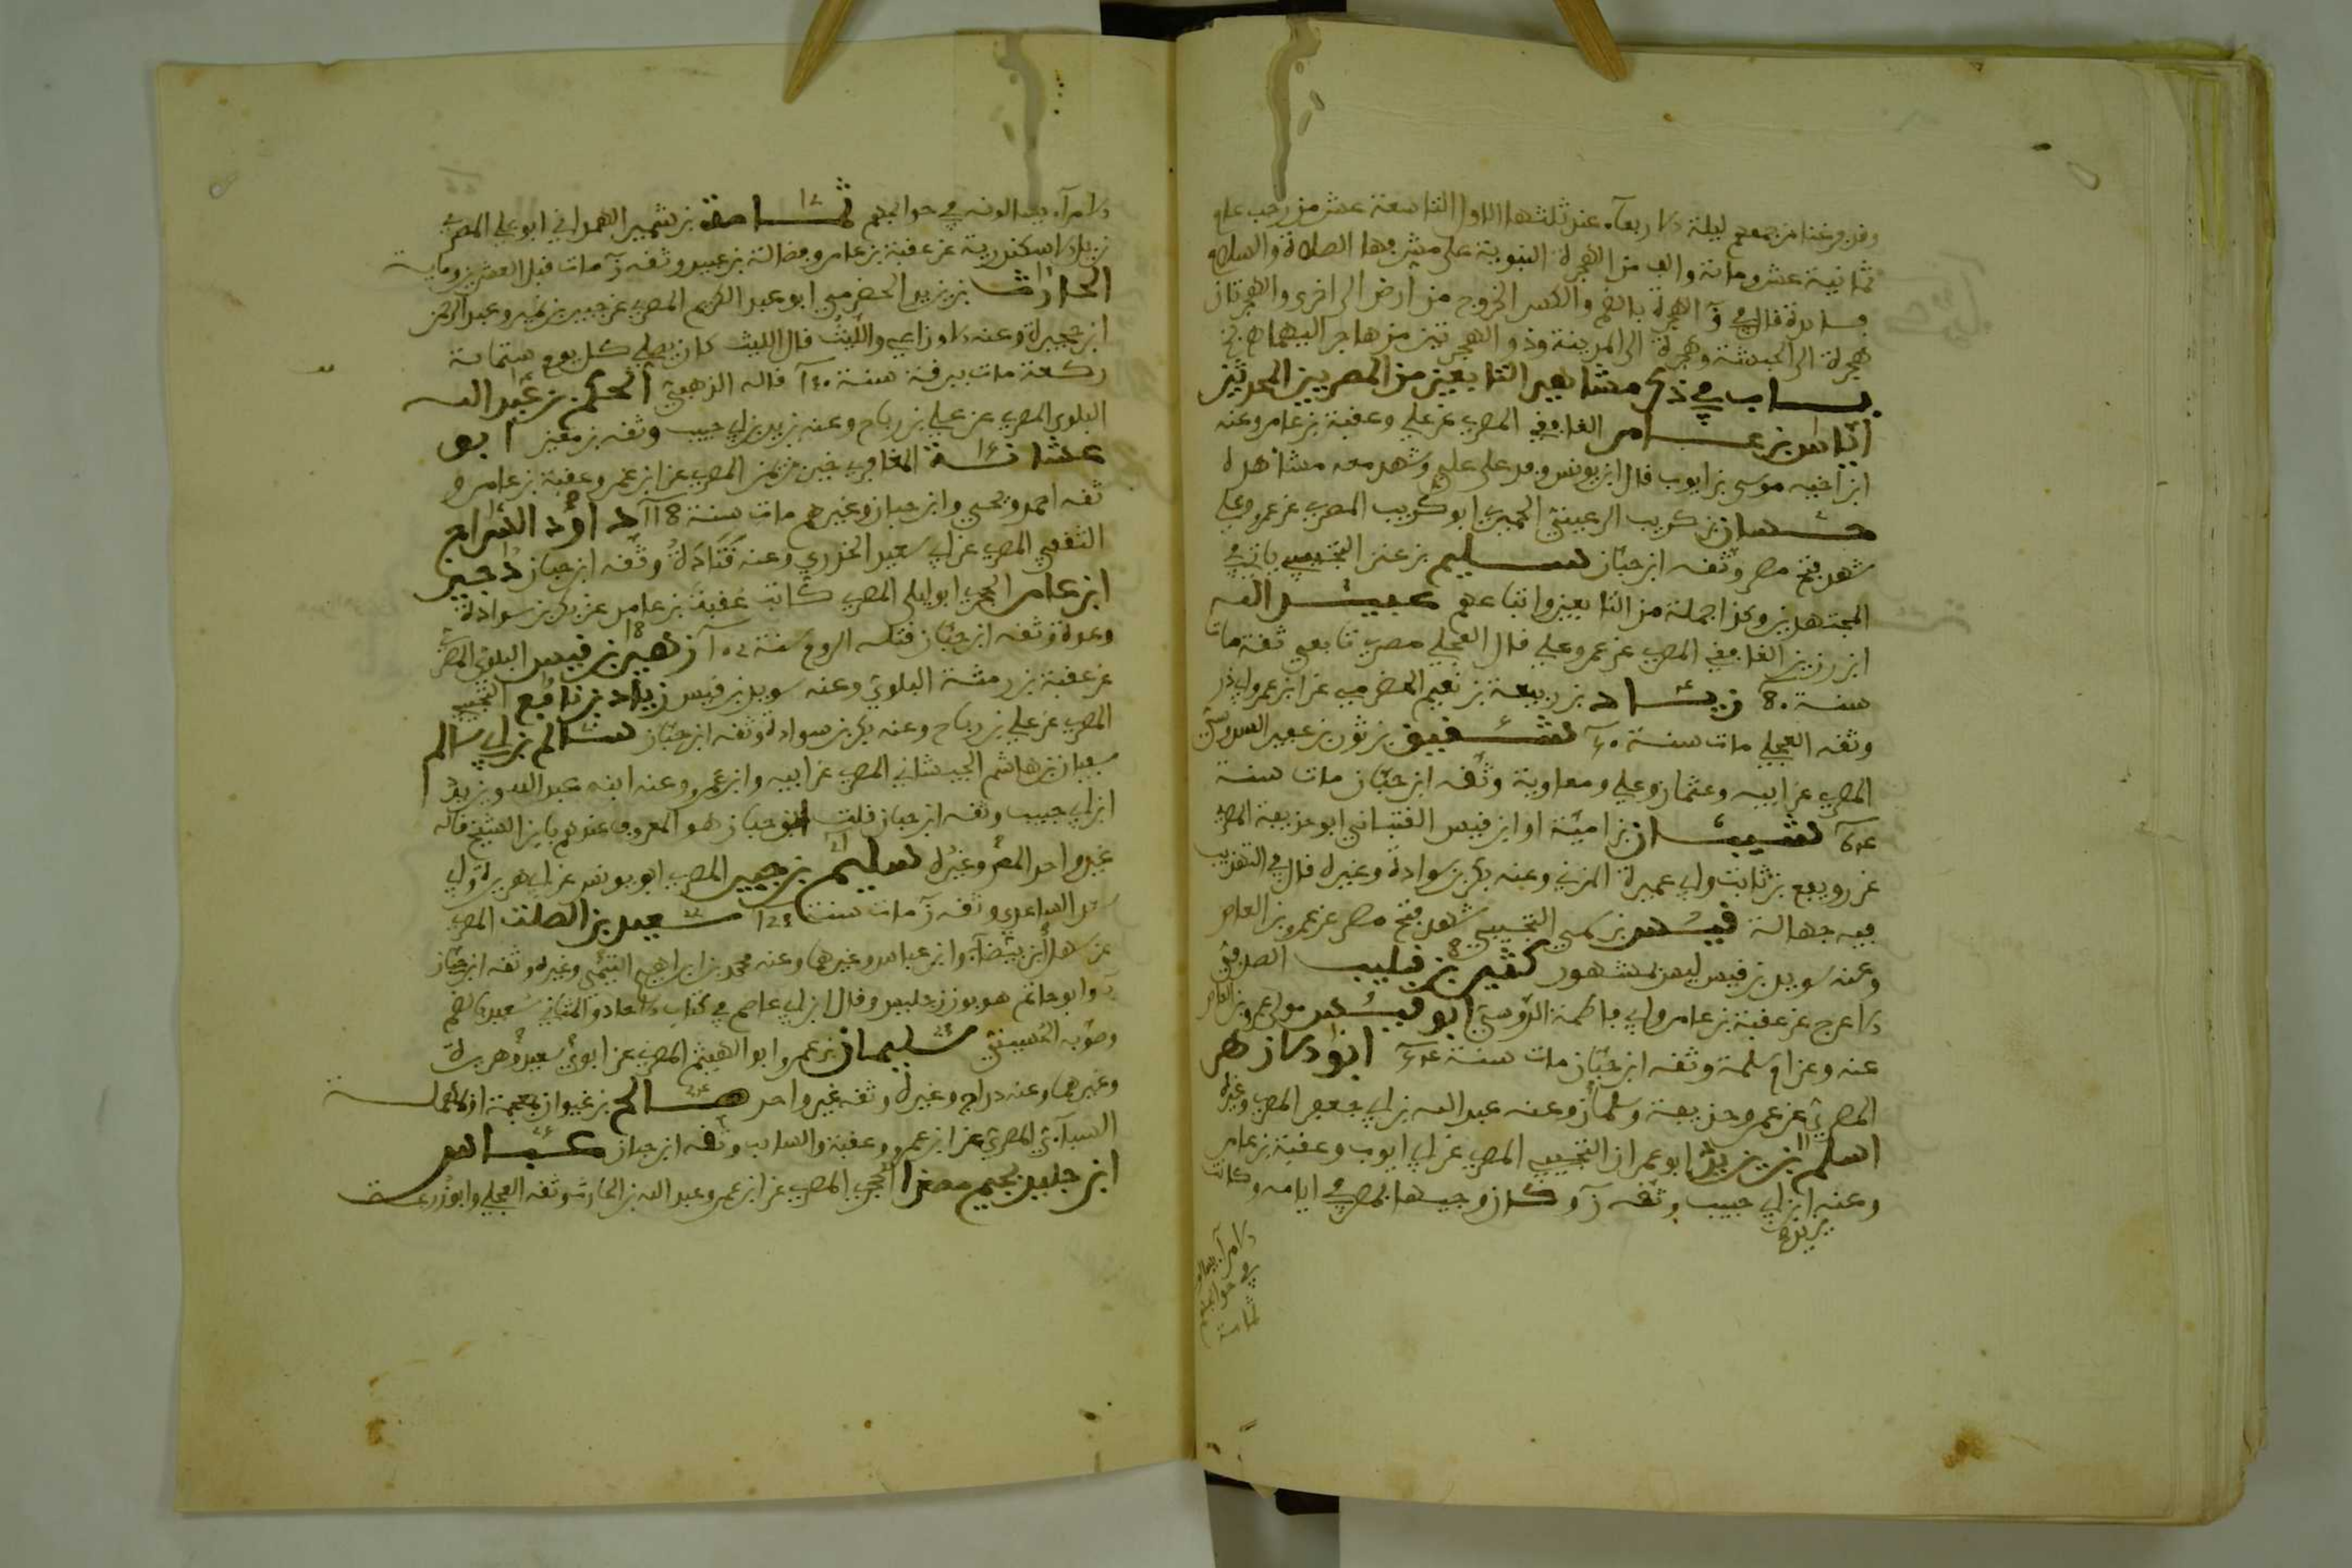 وقد فرغنا من جمعهم ليلة الاربعآء عند ثلثها الاول التاسعة عشر من رجب عام
ثمانية عشر ومائة والف من الهجرة النبوية على مشرفها الصلاة والسلام
فسايدة قال في ق الهجرة بالضم والكسر الخروج من ارض الى اخرى والهجرتان
هجرة الى الحبشة وهجرة الى المدينة وذو الهجرتين من هاجر اليهما
بساب في ذكر مشاهير التابعين من المصريين المحدثين
اياس بن عامر الغافقي المصري عن علي وعقبة بن عامر وعنه
ابن اخيه موسى بن ايوب قال ابن يونس وفد على علي وشهد معه مشاهده
حسان بن كريب الرعيني الحميري ابو كريب المصري عن عمر وعلي
شهد فتح مصر وثقه ابن حبان سليم بن عنز التجيبي ياتي في
المجتهدين وكذا جملة من التابعين واتباعهم عبد الله
ابن رزين الغافقي المصري عن عمر وعلي قال العجلي مصري تابعي ثقة مات
سنة 80 زياد بن ربيعة بن نعيم الحضرمي عن ابن عمر وابي ذر
وثقه العجلي مات سنة شفيق بن ثور بن عفير السدوسي
المصري عن ابيه وعثمان وعلي ومعاوية وثقه ابن حبان مات سنة
شيبان بن امية او ابن قيس القتباني ابو حذيفة المصري
عن رويفع بن ثابت وابي عميرة المزني وعنه بكر بن سوادة وغيره قال في التقريب
فيه جهالة قيس بن سمي التجيبي شهد فتح مصر عن عمرو بن العاص
وعنه سويد بن قيس ليس بمشهور كثير بن قليب الصدفي
الاعرج عن عقبة بن عامر وابي فاطمة الدوسي ابو قيس مولى عمرو بن العاص
عنه وعن ام سلمة وثقه ابن حبان مات سنة ابو الازهر
المصري عن عمر وحذيفة وسلمان وعنه عبد الله بن ابي جعفر المصري وغيره
اسلم بن يزيد ابو عمران التجيبي المصري عن ابي ايوب وعقبة بن عامر
وعنه ابن ابي حبيب وثقه ن وكان وجيها بمصر في ايامه وكانت
الامرآء يسالونه
في حوايجهم
ثمامة
الامرآء يسالونه في حوايجهم ثمامة بن شفي الهمداني ابو علي المصري
نزيل الاسكندرية عن عقبة بن عامر وفضالة بن عبيد وثقه ن مات قبل العشرين ومائة
الحارث بن يزيد الحضرمي ابو عبد الكريم المصري عن جبير بن نفير وعبد الرحمن
ابن حجيرة وعنه الاوزاعي والليث قال الليث كان يصلي كل يوم ستمائة
ركعة مات ببرقة سنة قاله الذهبي الحكم بن عبد الله
البلوي المصري عن علي بن رباح وعنه يزيد بن ابي حبيب وثقه بن معين ابو
عشانة المعافري حي بن يؤمن المصري عن ابن عمر وعقبة بن عامر و
ثقه احمد ويحيى وابن حبان وغيرهم مات سنة 118 داود السراج
الثقفي المصري عن ابي سعيد الخدري وعنه قتادة وثقه ابن حبان دخين
ابن عامر الحجري ابو ليلى المصري كاتب عقبة بن عامر عنه بكر بن سوادة
وعدة وثقه ابن حبان قتله الروم سنة زهير بن قيس البلوي المصري
عن علقمة بن رمثة البلوي وعنه سويد بن قيس زياد بن نافع التجيبي
المصري عن علي بن رباح وعنه بكر بن سوادة وثقه ابن حبان سالم بن ابي سالم
سفيان بن هاشم الجيشاني المصري عن ابيه وابن عمرو وعنه ابنه عبد الله ويزيد
ابن ابي حبيب وثقه ابن حبان قلت ابو حبان هو المعروف عندهم بابن الشيخ قاله
غير واحد وغيره سليم بن جبير المصري ابو يونس عن ابي هريرة وابي
سعد الساعدي وثقه ن مات سنة 123 سعيد بن الصلت المصري
عن سهل بن بيضآء وابن عباس وغيرهما وعنه محمد بن ابراهيم التيمي وغيره وثقه ابن حبان
وابو حاتم هو بوزن جليس وقال ابن ابي عاصم في كتاب الاحاد والمثاني سعيد بالضم
وصوبه الحسيني سليمان بن عمرو ابو الهيثم المصري عن ابوي سعيد وهريرة
وغيرهما وعنه دراج وغيره وثقه غير واحد صالح بن خيوان بمعجمة او مهملة
السبائي المصري عن ابن عمرو وعقبة والسايب وثقه ابن حبان عباس
ابن جليد بجيم مصغرا الحجري المصري عن ابن عمر وعبد الله بن الحارث وثقه العجلي وابو زرعة